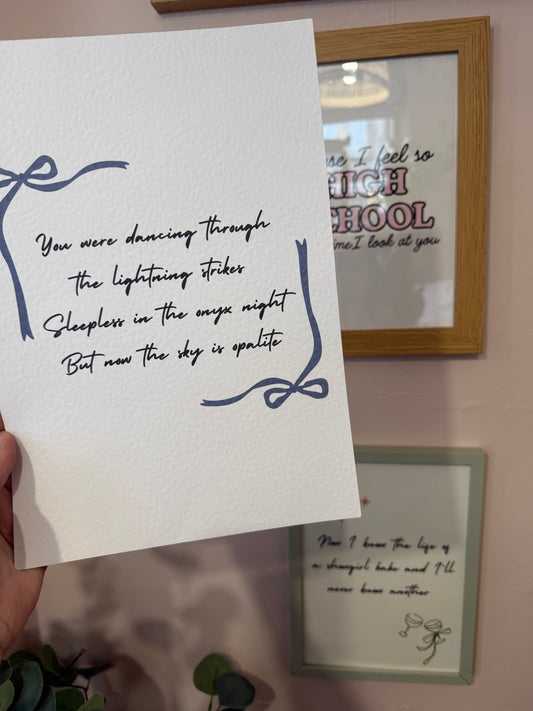 You were dancing through
the lightning strikes
Sleepless in the onyx night
But now the sky is opalite
I feel so
HIGH
SCHOOL
I look at you
Now I know the life of
a showgirl babe and I'll
never know another